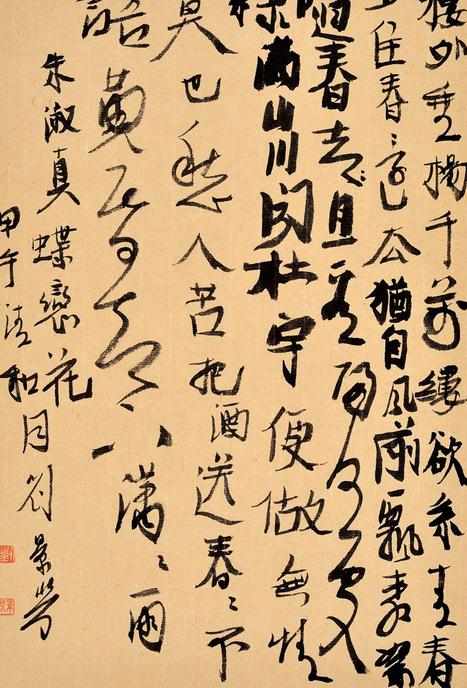 樓外垂楊千萬縷欲系青春
少住春還去猶自風前飄柳絮
隨春去且看歸何處
綠滿山川聞杜宇便做無情
莫也愁人苦把酒送春〻不
語黃昏卻下瀟〻雨
朱淑真蝶戀花
甲午清和月劉景